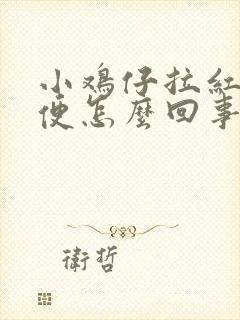 小鸡仔拉紅
便怎麼回事
衛哲